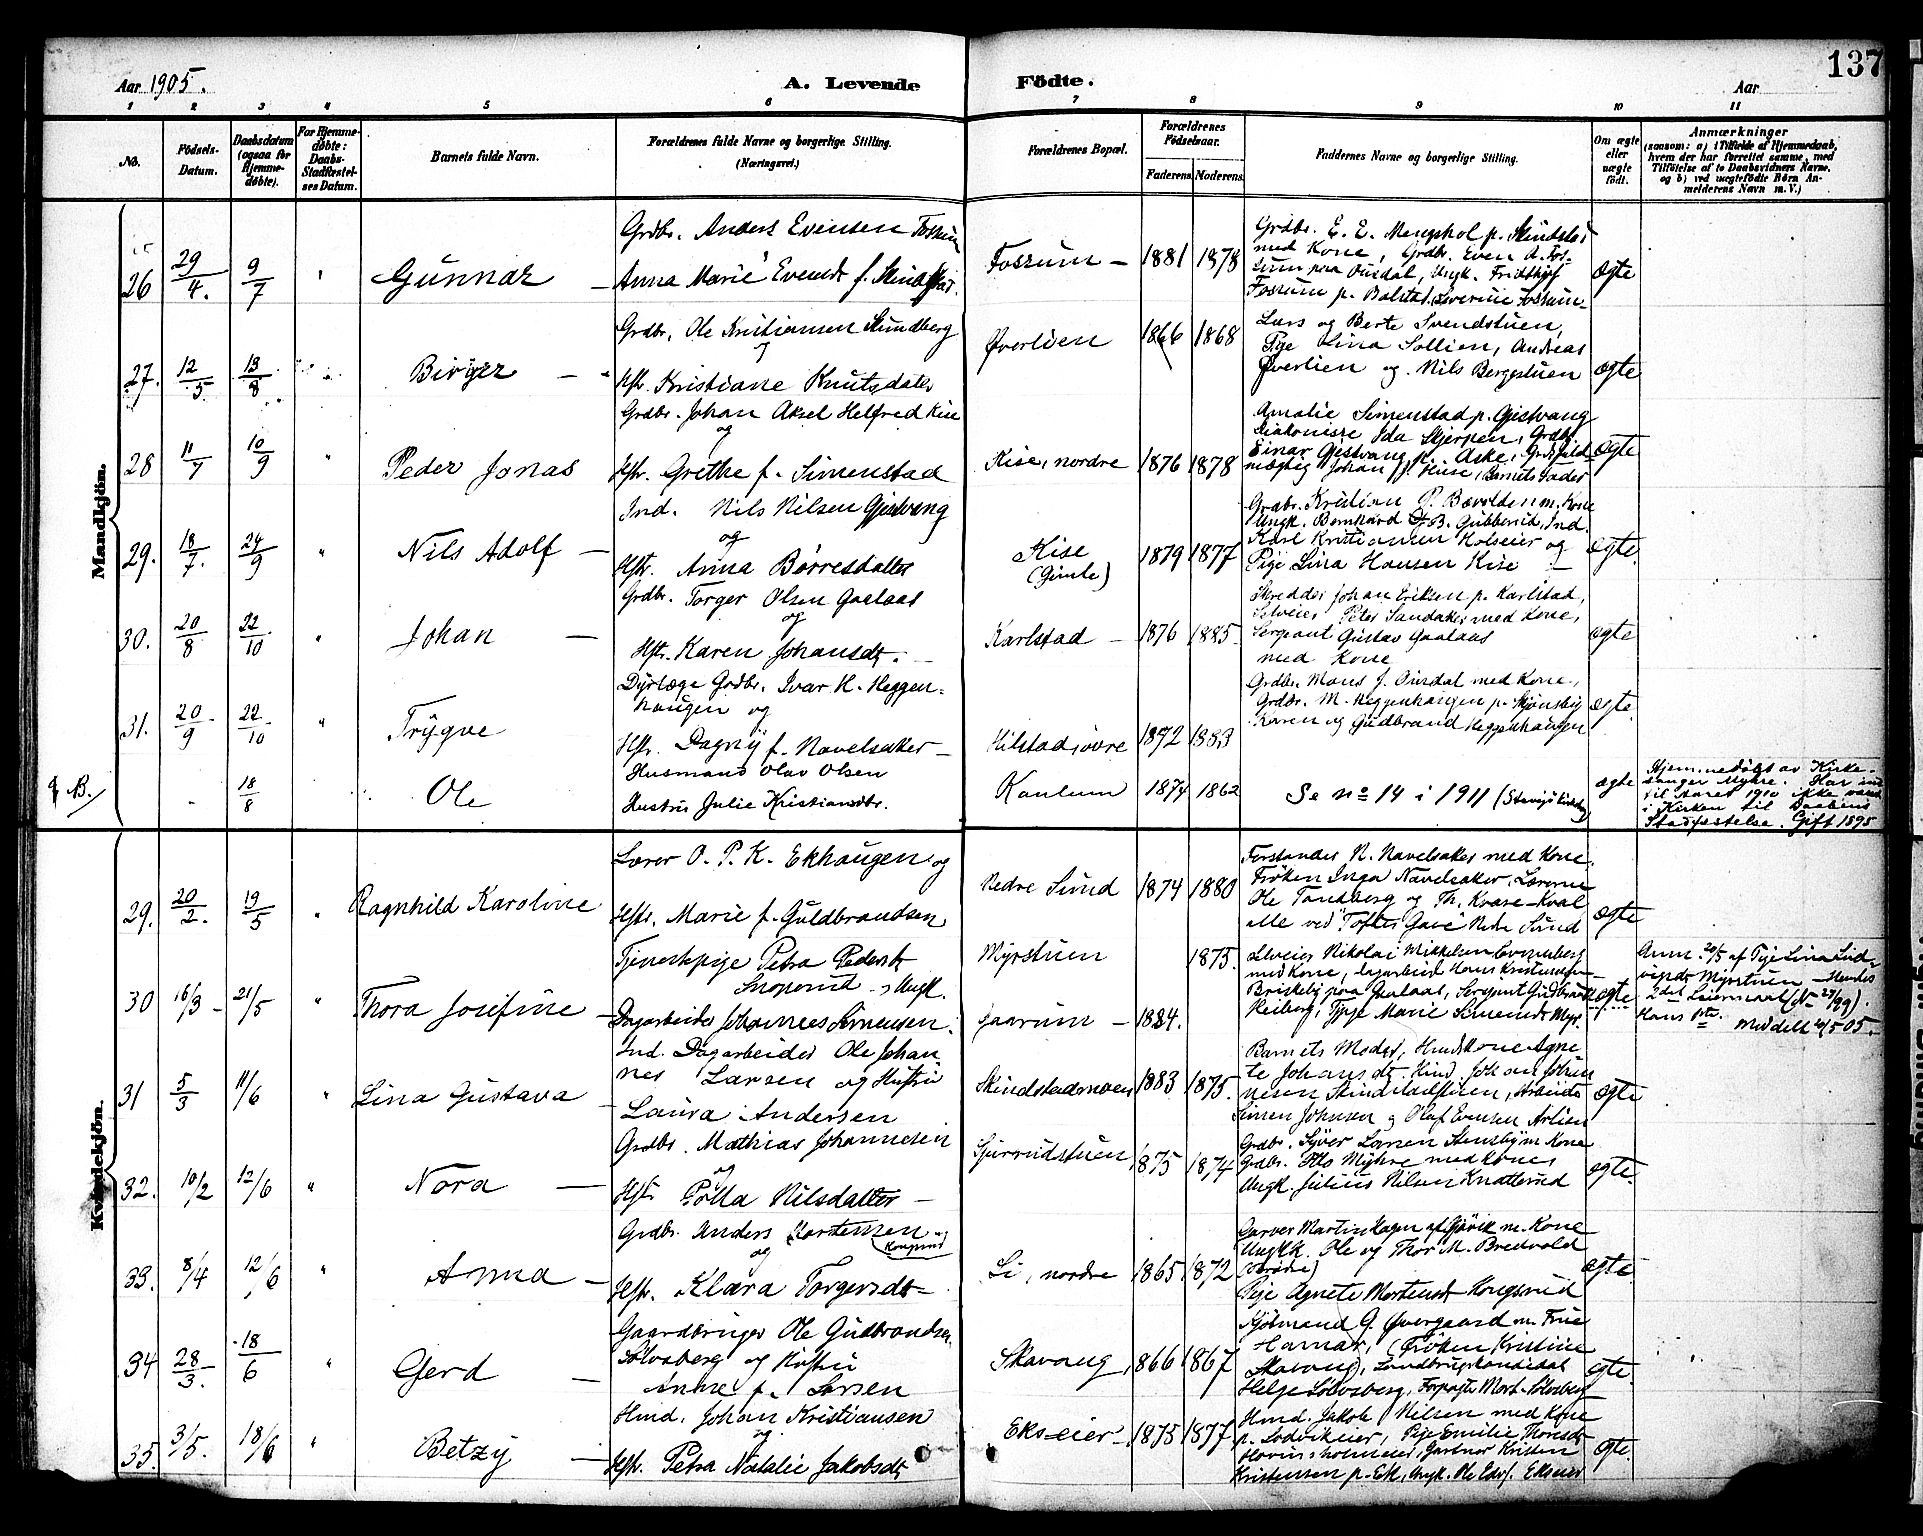 137
Aar 1905.
A. Levende
Födte.
Aar
1 2 3 4 5 6 7 8 9 10 11
No.
Födsels-
Datum.
Daabsdatum
(ogsaa for
Hjemme-
döbte).
For Hjemme-
döbte:
Daabs-
Stadfæstel-
ses Datum.
Barnets fulde Navn.
Forældrenes fulde Navne og borgerlige Stilling.
(Næringsvei.)
Forældrenes Bopæl.
Forældrenes
Födselsaar.
Faderens. Moderens.
Faddernes Navne og borgerlige Stilling.
Om ægte
eller
uægte
födt.
Anmærkninger
(saasom: a) i Tilfælde af Hjemmedaab,
hvem der har forrettet samme, med
Tilföielse af to Daabsvidners Navne,
og b) ved uægtefödte Börn An-
melderens Navn m. V.)
Mandkjön.
26 29/4. 9/7 " Gunnar —
Grdbr. Anders Evensen Fossum
Anna Marie Evensdt f. Skindstad.
Fossum — 1881 1878
Grdbr. E. E. Mengshol p. Skindstad
med Kone, Grdbr. Even A. Fos-
sum paa Ousdal, Ungk. Fridthjof
Fossum p. Bolstad, Severine Fossum
ægte
27. 12/5 13/8 " Birger —
Grdbr. Ole Kristiansen Strandberg
og
Hstr. Kristiane Knutsdatter
Øverlien 1866 1868
Lars og Berte Svendstuen,
Pige Lina Sollien, Andreas
Øverlien og Nils Bergstuen
ægte
28 11/7 10/9 " Peder Jonas
Grdbr. Johan Aksel Helfred Kise
og
Hstr. Grethe f. Simenstad
Kise, nordre 1876 1878
Amalie Simenstad p. Gjestvang
Diakonisse Ida Skjerpen, Grdbr.
Einar Gjestvang p. Aske, Grdsfuld-
mægtig Johan J. Huse, Barnets Fader
ægte
29. 18/7. 24/9 " Nils Adolf —
Ind. Nils Nilsen Gjestvang
og
Hstr. Anna Børresdatter
Kise
(Gimle)
1879 1877
Grdbr. Kristian P. Bævolden m. Kone
Ungk. Bernhard B. Gubberud, Ind.
Karl Kristiansen Holseier og
Pige Lina Hansen Kise
ægte.
30. 20/8 22/10 " Johan —
Grdbr. Torger Olsen Gaalaas
og
Hstr. Karen Johansdt. —
Karlstad — 1876 1885.
Skredder Johan Eriksen p. Karlstad,
Selveier Peter Sandaker med Kone,
Sergeant Gustav Gaalaas
med Kone
ægte
31. 20/9 22/10 " Trygve
Dyrlæge Grdbr. Ivar H. Heggen-
haugen og
Hstr. Dagny f. Navelsaker —
Hilstad, øvre 1872 1883
Grdbr. Mons J. Ousdal med Kone,
Grdbr. M. Heggenhaugen p. Skjønsby
Karen og Gudbrand Heggenhaugen
ægte.
B. 18/8 Ole
Husmand Olav Olsen
Hustru Julie Kristiansdtr.
Kaulum 1874 1862
Se no 14 i 1911
ægte
Hjemmedøbt av Kirke-
sanger Myhre. Har ind-
til Aaret 1910 ikke været
i Kirken til Daabens
Stadfæstelse. Gift 1895
Kvindekjön.
29. 20/2. 19/5 " Ragnhild Karoline
Lærer O. P. K. Ekhaugen og
Hstr. Marie f. Guldbrandsen
Nedre Sund 1874 1880
Forstander N. Navelsaker med Kone.
Frøken Inga Navelsaker, Lærerne
Ole Tandberg og Th. Kvase-Kval
alle ved "Toftes Gave" Nedre Sund
ægte
30 16/3 — 21/5 " Thora Josefine —
Tjenestepige Petra Pedersdt
Ungk.
Dagarbeider Johannes Simensen.
Myrstuen
Jaarum —
1884. 1875.
Selveier Nikolai Mikkelsen
med Kone, Dagarbeid. Hans Kristiansen
Briskeby paa Gaalaas, Sergeant Gudbrand
Heiberg, Pige Marie Simensdt Myr.
uægte
Anm. 20/5 af Pige Lina
Myrstuen — Hendes
2det Leiermaal (No 29/99).
Hans 1ste. Meddelt 21/5 05.
31 5/3 11/6 " Lina Gustava —
Ind. Dagarbeider Ole Johan-
nes Larsen og Hustru
Laura Andersen
Skindstadmoen 1883 1875.
Barnets Moder, Hmdskone Agne-
te Johansdt. Hmd. Johan Johan-
nesen Skindstadstuen, Arbeider
Simen Johnsen og Olaf Evensen Arlien
ægte
32. 10/2 12/6 " Nora —
Grdbr. Mathias Johannesen
og
Hstr Polla Nilsdatter —
Sjurrudstuen 1875 1874
Grdbr. Syver Larsen Stensby m. Kone
Grdbr. Otto Myhre med Kone
Ungk. Julius Nilsen Knatterud
ægte.
33. 8/4 12/6 " Anna —
Grdbr. Anders Mortensen
(Kongsrud)
og
Hstr. Klara Torgersdt —
Li, nordre 1865 1872
Garver Martin Hagen af Gjøvik m. Kone
Ungkk. Ole og Thor M. Bredvold
(Brødre)
Pige Agnete Mortensdt Kongsrud
ægte
34 28/3. 18/6 " Gerd —
Gaardbruger Ole Gudbrandsen
Sølvsberg og Hustru
Anne f. Larsen
Skavang 1866 1867
Kjøbmand G. Øvergaard m. Frue
Hamar, Frøken Kristine
Skavang, Landbrugskandidat
Helge Sølvsberg, Forpagter Mort. Sølvsberg
ægte.
35. 3/5. 18/6 " Betzy —
Hmd. Johan Kristiansen
og
Hstr. Petra Natalie Jakobsdt
Ekseier — 1875 1877
Hmd. Jakob Nilsen med Kone
p. Lodvikeier, Pige Emilie Thorsdt
Hovinsholmeier, Gartner Kristen
Kristensen p. Ek, Ungk. Ole Edv. J. Ekseier
ægte.